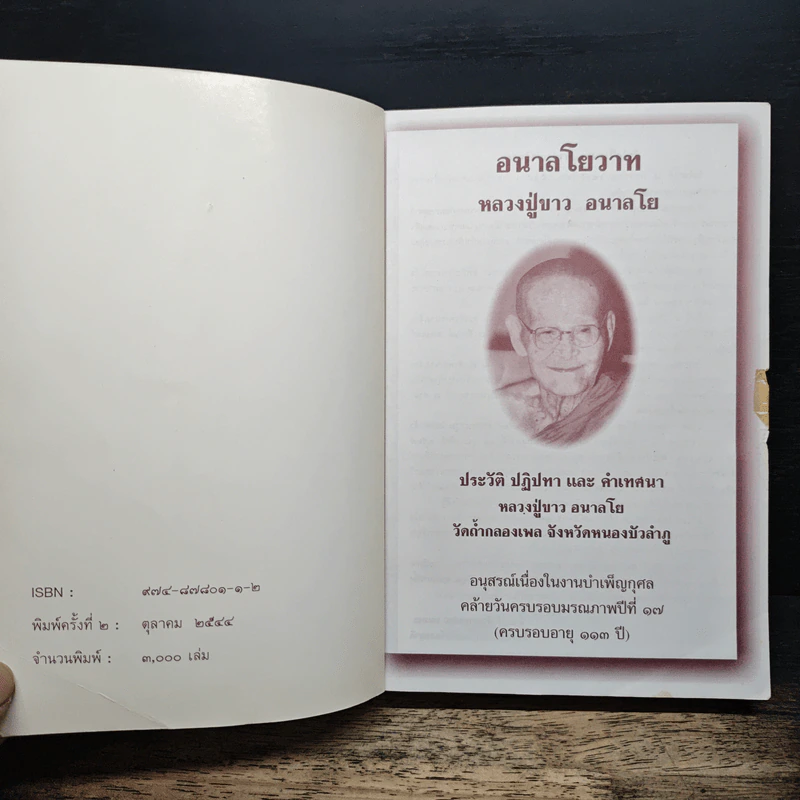 ISBN : ๙๗๔-๘๗๘๐๑-๑-๒
พิมพ์ครั้งที่ ๒ : ตุลาคม ๒๕๔๔
จำนวนพิมพ์ : ๓,๐๐๐ เล่ม
อนาลโยวาท
หลวงปู่ขาว อนาลโย
ประวัติ ปฏิปทา และ คำเทศนา
หลวงปู่ขาว อนาลโย
วัดถ้ำกลองเพล จังหวัดหนองบัวลำภู
อนุสรณ์เนื่องในงานบำเพ็ญกุศล
คล้ายวันครบรอบมรณภาพปีที่ ๑๗
(ครบรอบอายุ ๑๑๓ ปี)